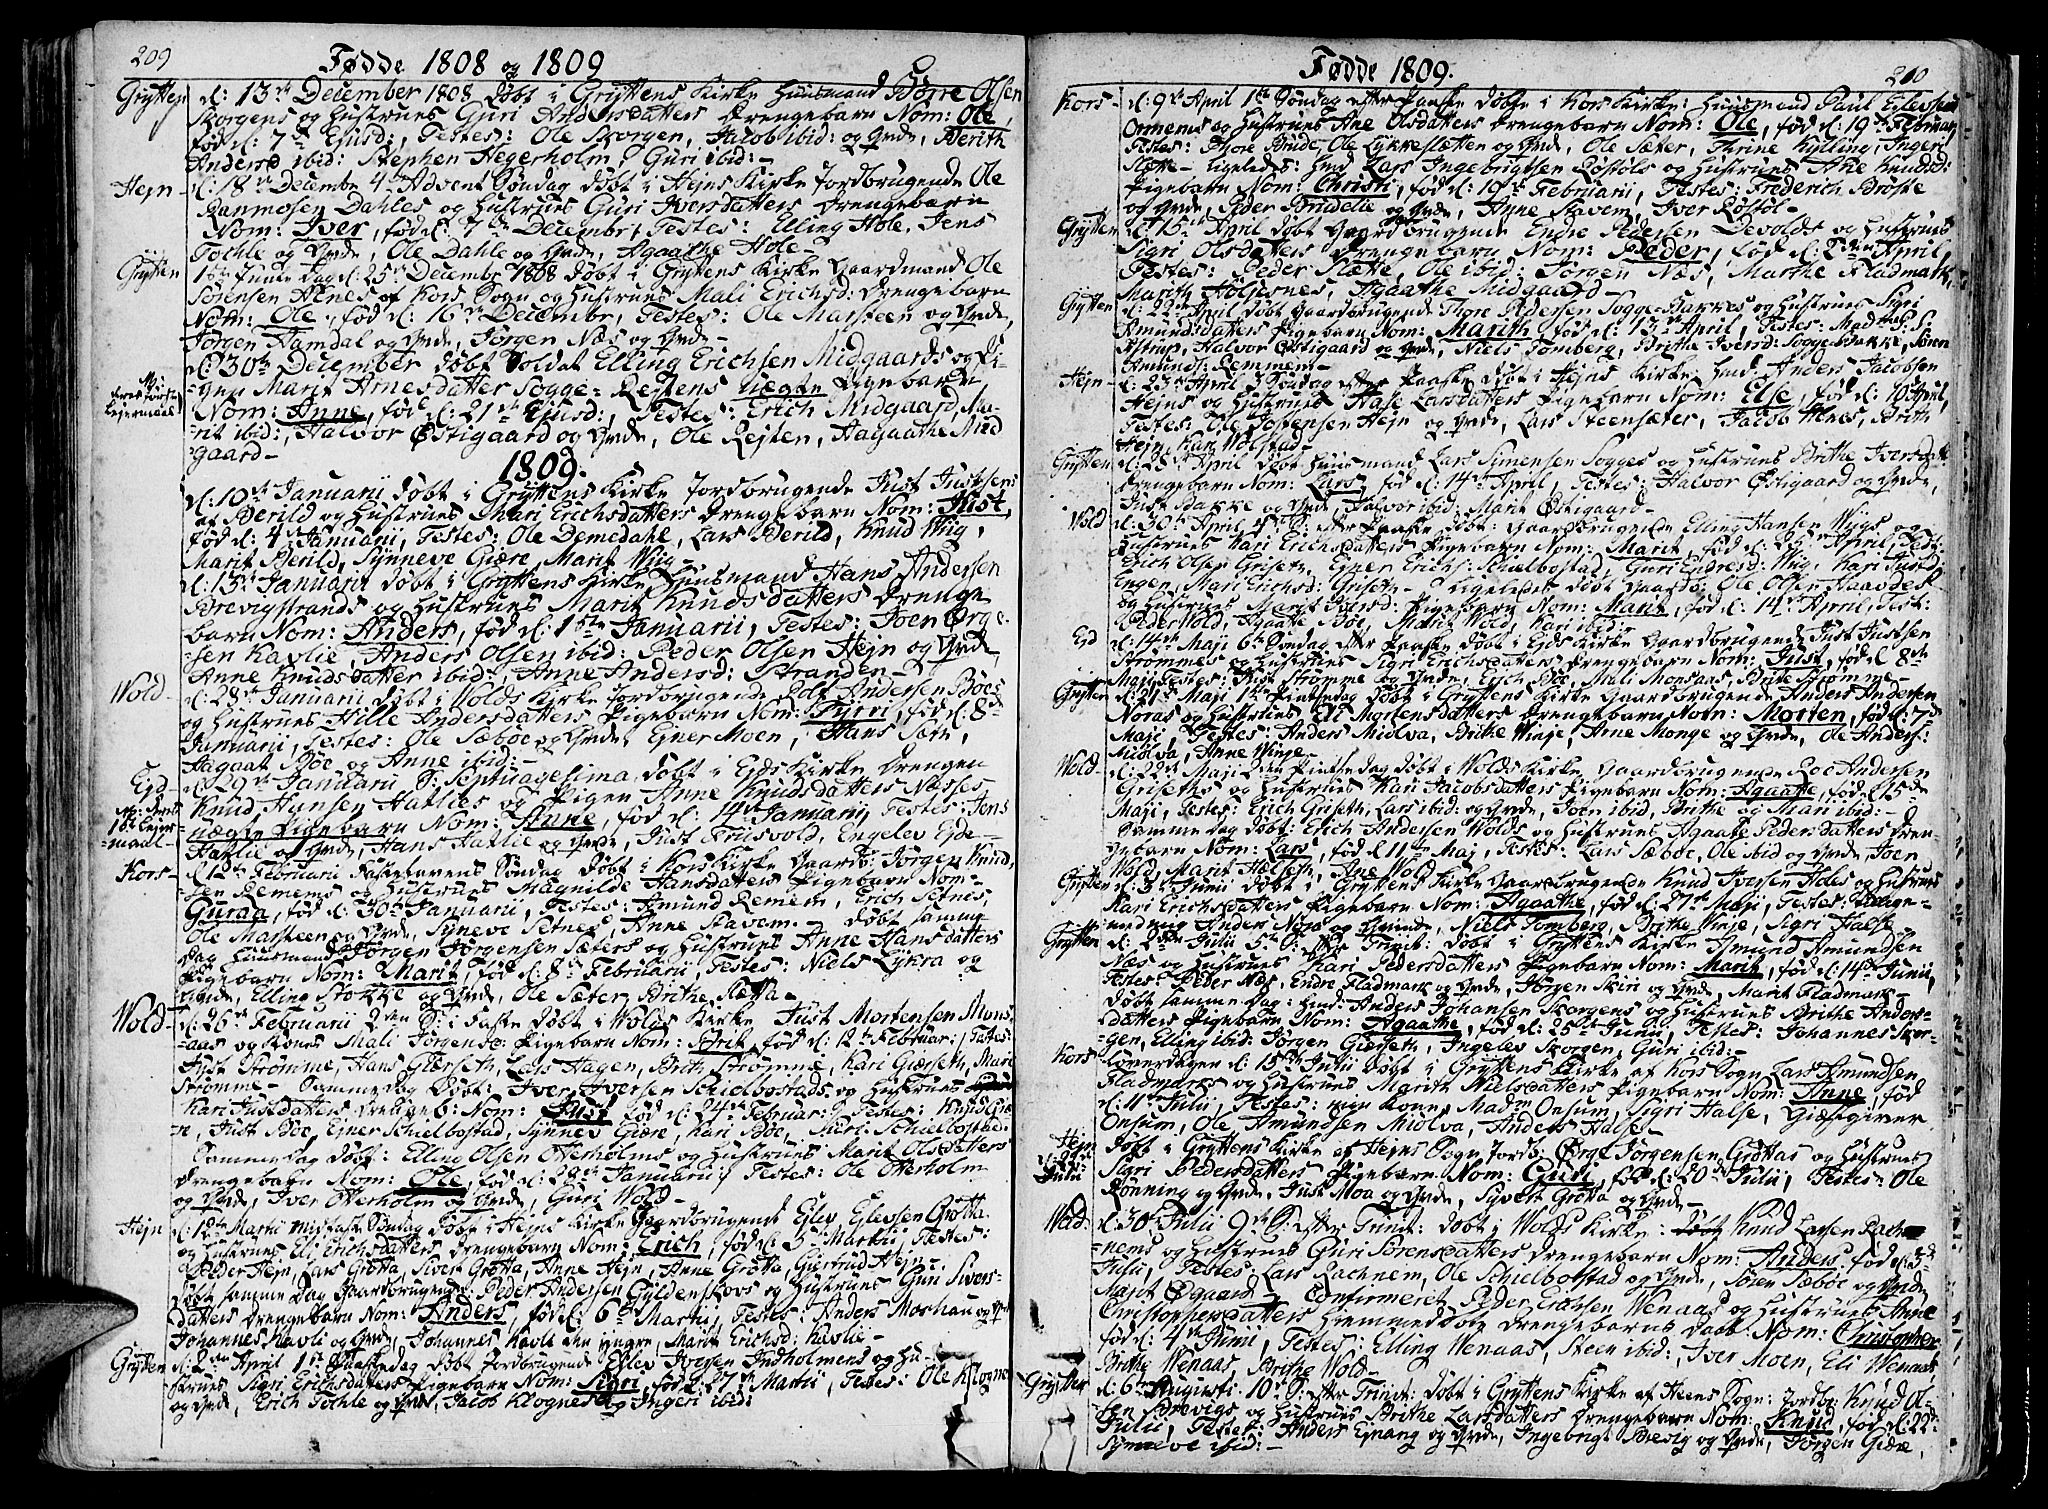 209
Fødde 1808 og 1809
Grytten d: 13de December 1808 Døbt i Gryttens Kirke Huusmand Børre Olsen
Skorgens og Hustrues Guri Andersdatters Drengebarn Nom: Ole,
fød d: 7de Ejusd: Testes: Ole Skorgen, Jacob ibid: og Qvde, Berith
Anders ibid: Stephen Hegerholm, Guri ibid:-
Hejn d: 18de Decembr 4de Advent Søndag Døbt i Hejns Kirke Jordbrugende Ole
Dahles og Hustrues Guri Iversdatters Drengebarn
Nom: Iver, fød d: 7de Decembr, Testes: Elling Hole, Jens
Tochle og Qvde, Ole Dahle og Qvde, Agaathe Hole-
Grytten 1ste Juule Dag d: 25de Decembr 1808 Døbt i Gryttens Kirke Gaardmand Ole
Sørensen Alnes af Kors Sogn og Hustrues Mali Erichsd: Drengebarn
Nom: Ole, fød d: 16de Decembr, Testes: Ole Marsteen og Qvde,
Jørgen Hamdal og Qvde, Jørgen Næs og Qvde-
d: 30te December døbt Soldat Elling Erichsen Midgaards og Pi-
gen Marit Arnesdatter Sogge-Reitens uægte Pigebarn
Nom: Anne, fød d: 21de Ejusd: Testes: Erich Midgaard, Ma-
rit ibid:, Halvor Østigaard og Qvde, Ole Rejten, Aagaathe Mid
gaard-
1809.
d: 10de Januarii døbt i Gryttens Kirke Jordbrugende Just Justsen
af Berild og Hustrues Mari Erichsdatters Drengebarn Nom: Just,
fød d: 4de Januarii, Testes: Ole Demedahl, Lars Berild, Knud Wiig,
Marit Berild, Synneve Giære, Marit Wiig
d: 13de Januarii døbt i Gryttens Kirke Huusmand Hans Andersen
Brevigstrands og Hustrues Marit Knudsdatters Drenge
barn Nom: Anders, fød d: 1ste Januarii, Testes: Joen Ørge-
sen Kavlie, Anders Olsen ibid: Peder Olsen Hejn og Qvde,
Anne Knudsdatter ibid:, Anne Andersd: Stranden-
Wold- d: 28de Januarii døbt i Wolds Kirke Jordbrugende Andersen Boes
og Hustrues Hille Andersdatters Pigebarn Nom: fød d: 8de
Januarii, Testes: Ole Sæboe og Qvde, Ejner Moen, Hans
Aagaat Boe og Anne ibid:-
Ejd d: 29de Januarii S: Septuagesima døbt i Ejds Kirke Drengen
Knud Hansen Hatlies og Pigen Anne Knudsdatters Næsses
uægte Pigebarn Nom: Anne, fød d: 14de Januarii, Testes: Jens
Hatlie og Qvde, Hans Hatlie og Qvde, Just Engelev Ejde-
Kors- d: 12te Februarii Fastelavens Søndag Døbt i Kors Kirke Gaardb: Jørgen Knud-
sen Remems og Hustrues Magnilde Hansdatters Pigebarn Nom-
Guraa, fød d: 30te Januarii, Testes: Amund Remem, Erich Setnes,
Ole Marsteen og Qvde, Syneve Setnes, Anne Stavem - Døbt samme
Dag Huusmand Jørgen Jørgensen Sæters og Hustrues Anne Hansdatters
Pigebarn Nom: Marit, fød d: 8de Februarii, Testes: Niels Lykra og
Qvde, Elling Stokke og Qvde, Ole Sæter, Brithe Slætta-
Wold- d: 26de Februarii 2den S: i Faste Døbt i Wolds Kirke Just Mortensen Mons-
aas og Kones Mali Jørgensd: Pigebarn Nom: fød d: 12te Februar: Testes:
Just Strømme, Hans Gierseth, Lars Hagen, Brit Strømme, Kari Gierseth, Mari
Strømme- Samme Dag Døbt: Iver Iversen Schielbostads og Hustrues
Kari Justdatters Drengeb: Nom: Just fød d: 24de Februar: Testes: Knud Giæ-
re, Just Boe, Ejner Schielbostad, Synnev Giære, Kari Boe, Guri Schielbostad-
Samme Dag Døbt: Elling Olsen Otterholms og Hustrues Marit Olsdatters
Drengebarn Nom: Ole, fød d: Januarii, Testes: Ole Otterholm
og Qvde, Iver Otterholm og Qvde, Guri Wold-
Hejn d: 12te Martii midfaste Søndag Døbt i Hejns Kirke Gaardbrugende Ejlev Ejlevsen Grotta
og Hustrues Eli Erichsdatters Drengebarn Nom: Erich, fød d: 5te Martii, Testes:
Peder Hejn, Lars Grotta, Siver Grotta, Anne Hejn, Anne Grotta, Giertrud Hejn-
Døbt samme Dag Gaardbrugende: Peder Andersen Gyldenskovs og Hustrues Guri Sivers-
datters Drengebarn Nom: Anders, fød d: 6te Martii, Testes: Anders Morhau og Qvde
Johannes Kavli og Qvde, Johannes Kavli den yngre, Marit Erichsd: Kavlie-
Grytten d: 2den April 1ste Paaskedag Døbt Jordbrugende Ellev Iversen Indholmens og Hu-
strues Sigri Erichsdatters Pigebarn Nom: Sigri, fød d: 27de Martii, Testes: Ole Klogne
og Qvde, Erich Tochle og Qvde, Jacob Klognes og Ingeri ibid:
210
Fødde 1809.
Kors- d: 9de April 1ste Søndag efter Paaske Døbt i Kors Kirke: Huusmand Paul Eilevsen
Ormems og Hustrues Ane Olsdatters Drengebarn Nom: Ole, fød d: 19de Februar,
Testes: Thore Brude, Ole Lykkeslætten og Qvde, Ole Sæter, Thrine Kylling, Ingeri
Slætte- Ligeledes: Hmd Lars Ingebrigtsen Røstøls og Hustrues Ane Knudsd:
Pigebarn Nom: Christi, fød d: 19de Februarii, Testes: Frederich Brøste
og Qvde, Peder Brudelie og Qvde, Anne Stavem, Iver Røstøl-
Grytten d: 15de April Døbt Gaardbrugende Endre Pedersen Devolds og Hustrues
Sigri Olsdatters Drengebarn Nom: Peder, fød d: 2den April,
Testes: Peder Slætte, Ole ibid: Jørgen Næs, Marthe Fladmark,
Marith Holjesnes, Agaathe Midgaard-
Grytten d: 22de April døbt Gaardbrugende Thore Pedersen Sogge-Bakkes og Hustrues Sigri
Amundsdatters Pigebarn Nom: Marith fød d: 13de April, Testes: Madme S:
Astrup, Halvor Østigaard og Qvde, Niels Tomberg, Brithe Iversd: Sogge-Bakke, Søren
Amunds: Remmem-
Hejn- d: 23de April 3 Søndag efter Paaske Døbt i Hejns Kirke: Hmd Anders Jacobsen
Hejns og Hustrues Aase Larsdatters Pigebarn Nom: Else, fød d: 10 April,
Testes: Ole Jostensen Hejn og Qvde, Lars Steensæter, Jacob Alnes, Brith
Hejn, Kari Wolstad-
Grytten d: 28de April Døbt Huusmand Lars Simensen Sogges og Hustrues Brithe Iversdatt
Drengebarn Nom: Lars, fød d: 14de April, Testes: Halvor Østigaard og Qvde,
Just Bakke og Qvde, Halvor ibid: Marit Østigaard-
Wold d: 30te April 4de S: efter Paaske Døbt: Gaardbrugende Elling Hansen Wiigs og
Hustrues Kari Erichsdatters Pigebarn Nom: Marit, fød d: 25de April, Test:
Erich Olsen Griseth, Ejner Erichs: Schielbostad, Guri Endresd: Wiig, Kari Justd:
Engen, Mari Erichsd: Griseth- Ligeledes døbt Gaardb: Ole Olsen Haavdes
og Hustrues Marit Iversd: Pigebarn Nom: Marit, fød d: 14de April, Test:
Peder Wold, Agaathe Boe, Marit Wold, Kari ibid:-
Ejd d: 14de Maji 6te Søndag efter Paaske Døbt i Ejds Kirke Gaardbrugende Just Justsen
Strømmes og Hustrues Sigri Erichsdatters Drengebarn Nom: Just, fød d 8de
Maji, Testes: Just Strømme og Qvde, Erich Boe, Mali Monsaas, Brite Strømme-
Grytten d: 21de Maji 1ste Pintsedag Døbt i Gryttens Kirke Gaardbrugende Anders Andersen
Noraas og Hustrues Eli Mortensdatters Drengebarn Nom: Morten, fød d: 7de
Maji Testes: Anders Miolva, Brithe Winje, Arne Monge og Qvde, Ole Anders:
Miolva, Anne Winje-
Wold- d: 22de Maji 2den Pintsedag Døbt i Wolds Kirke Gaardbrugende Andersen
Griseths og Hustrues Kari Jacobsdatters Pigebarn Nom: Agaathe, fød d: 15de
Maji, Testes: Erich Griseth, Lars ibid: og Qvde, Joen ibid, Brithe og Mari ibid:-
Samme Dag Døbt: Erich Andersen Wolds og Hustrues Agaate Pedersdatters Dren-
gebarn Nom: Lars, fød d: 11te Maj, Testes: Lars Sæboe, Ole ibid og Qvde, Joen
Wold, Marit Helseth, Ane Wold-
Grytten d: 3de Junii Døbt i Gryttens Kirke Gaardbrugende Knud Iversen Holes og Hustrues
Kari Erichsdatters Pigebarn Nom: Agaathe, fød d: 27de Maji, Testes:
Anders Noraas og Qvinde, Niels Tomberg, Brithe Winje, Sigri Halse-
Grytten d: 2den Julii 5te S: efter Trinit: Døbt i Gryttens Kirke Amund Amundsen
Næs og Hustrues Kari Pedersdatters Pigebarn Nom: Marit, fød d: 14de Junii,
Testes: Peder Næs, Endre Fladmark og Qvde, Jørgen Skiri og Qvde, Marit Fladmark-
Døbt samme Dag: Hmd: Anders Johansen Skorgens og Hustrues Brithe Anders-
datters Pigebarn Nom: Agaathe, fød d: 25de Junii, Testes: Johannes Skor-
gen, Elling ibid: Jørgen Gierseth, Ingelev Skorgen, Guri ibid:-
Kors- Løverdagen d: 15de Julii Døbt i Gryttens Kirke af Kors Sogn Lars Amundsen
Fladmarks og Hustrues Marith Nielsdatters Pigebarn Nom: Anne, fød
d: 11te Julii, Testes: min Kone, Madm Onsum, Sigri Halse, Giæstgiver
Onsum, Ole Amundsen Miolva, Anders Halse-
Hejn d: 22de Julii Døbt i Gryttens Kirke af Hejns Sogn, Jordb: Ørge Jørgensen Grøttas og Hustrues
Sigri Pedersdatters Pigebarn Nom: Guri, fød d: 20de Julii, Testes: Ole
Rønning og Qvde, Just Moa og Qvde, Syvert Grøtta og Qvde-
Wold- d: 30te Julii 9de S: efter Trinit: Døbt i Wolds Kirke: Døbt Knud Larsen Rach-
nems og Hustrues Guri Sørensdatters Drengebarn Nom: Anders, fød d: 3de
Julii, Testes: Lars Rachnem, Ole Schielbostad og Qvde, Søren Sæboe og Qvde
Marit Øgaard- Confirmeret Peder Erichsen Wenaas og Hustrues Anne
Christophersdatters Hjemmedøbte Drengebarns Daab: Nom: Christopher
fød d: 4de Junii, Testes: Elling Wenaas, Steen ibid:, Iver Moen, Eli Wenaas,
Brithe Wenaas, Brithe Wold-
Grytten d: 6te Augusti 10de S: efter Trinit: Døbt i Gryttens Kirke af Heens Sogn: Jordbr: Knud Ol-
sen Brevigs og Hustrues Brithe Larsdatters Drengebarn Nom: Knud, fød d: 22de
Julii, Testes: Anders Ejnang og Qvde, Ingebrigt Brevig og Qvde, Jørgen Giære,
Synneve ibid:-